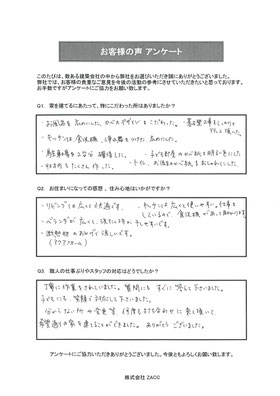 お客様の声 アンケート
このたびは、数ある建築会社の中から弊社をお選びいただき誠にありがとうございました。
弊社では、お客様の貴重なご意見を今後の活動の参考にさせていただきたいと思っております。
お手数ですがアンケートにご協力をお願い致します。
Q1. 家を建てるにあたって、特にこだわった所はありましたか？
・お風呂を広めにした。
・キッチンは食洗機、
・駐車場を2台分確保した。
・子ども部屋の
・収納をたくさん作った。
・トイレ、お風呂
Q2. お住まいになっての感想、住み心地はいかがですか？
・リビングは広くて快適です。
・キッチンは広くて使いやすい。仕事を
しているので、食洗機があって助かります
・ベランダが広くて、洗たく物が干しやすいです。
・断熱材のおかげで涼しいです。
(アクアフォーム)
Q3. 職人の仕事ぶりやスタッフの対応はどうでしたか？
丁寧に作業をされていました。質問にもすぐに答えて下さいました。
子どもにも笑顔で対応して下さいました。
分からない所や金具等、何度も打ち合わせに来て頂いて
希望通りの家を建てることができました。ありがとうございました。
アンケートにご協力いただきありがとうございました。今後ともよろしくお願い致します。
株式会社 ZACC